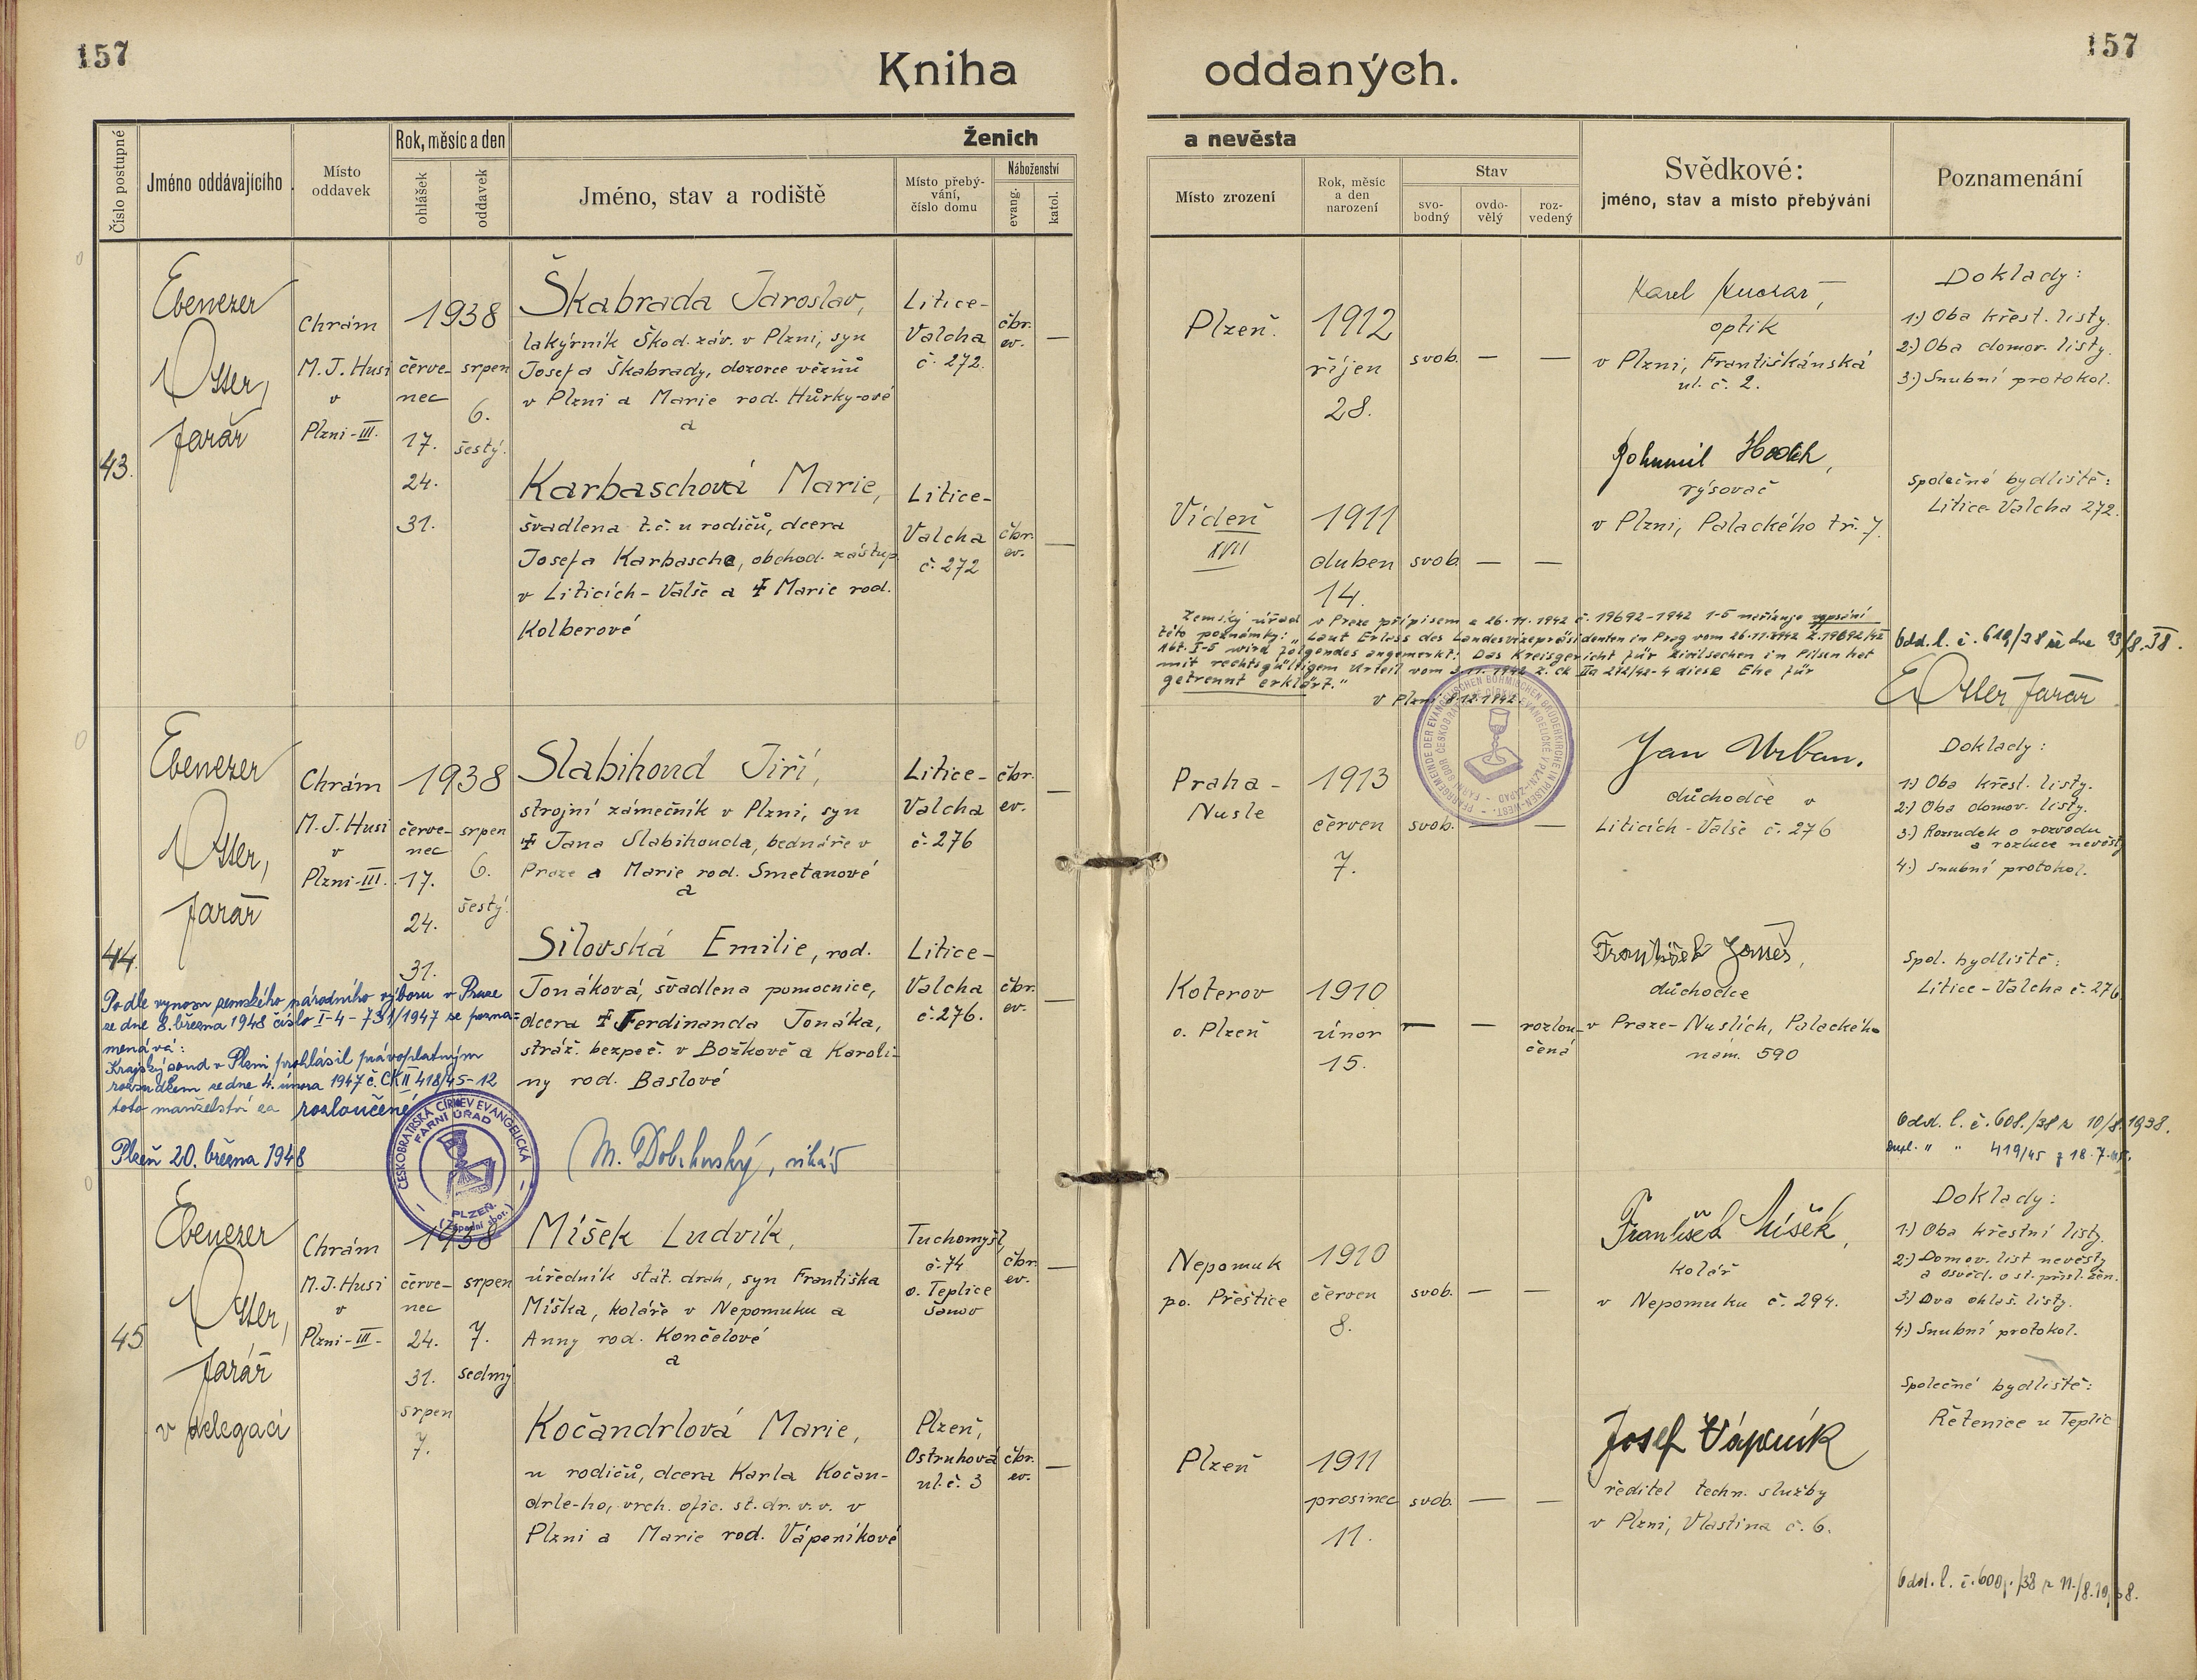 157
157
Kniha oddaných.
Číslo postupné
Jméno oddávajícího
Místo oddavek
Rok, měsíc a den
ohlášek
oddavek
Ženich
Jméno, stav a rodiště
Místo přebývání, číslo domu
Náboženství
evang.
katol.
a nevěsta
Místo zrození
Rok, měsíc a den narození
Stav
svobodný
ovdovělý
rozvedený
Svědkové:
jméno, stav a místo přebývání
Poznamenání
43.
Ebenezer
Otter,
farář
Chrám
M. J. Husi
v
Plzni-III.
1938
červenec
17.
24.
31.
srpen
6.
šestý.
Škabrada Jaroslav,
lakýrník Škod. záv. v Plzni, syn
Josefa Škabrady, dozorce vězňů
v Plzni a Marie rod. Hůrky-ové
a
Litice-
Valcha
č. 272.
čbr.
ev.
—
Plzeň.
1912
říjen
28.
svob. — —
Karel
optik
v Plzni, Františkánská
ul. č. 2.
Doklady:
1.) Oba křest. listy.
2.) Oba domov. listy.
3.) Snubní protokol.
Karbaschová Marie,
švadlena t.č. u rodičů, dcera
Josefa Karbasche, obchod. zástup.
v Liticích-Valše a ✝ Marie rod.
Kolberové
Litice-
Valcha
č. 272
čbr.
ev.
—
Vídeň
XVII
1911
duben
14.
svob. — —
Bohumil
rýsovač
v Plzni, Palackého tř. 7.
Společné bydliště:
Litice-Valcha 272.
Zemský úřad v Praze přípisem z 26.11.1942 č. 19692-1942 I-5 nařizuje vepsání
této poznámky: "Laut Erlass des Landesvizepräsidenten in Prag vom 26.11.1942 Z. 19692/42
Abt. I-5 wird folgendes angemerkt: Das Kreisgericht für Zivilsachen in Pilsen hat
mit rechtsgültigem Urteil vom 3.11.1942 Z. Ck IIa 272/42-4 diese Ehe für
getrennt erklärt."
v Plzni 8.12.1942.
Odd. l. č. 619/38 ze dne 23/8.38.
E Otter farář
44.
Ebenezer
Otter,
farář
Chrám
M. J. Husi
v
Plzni-III.
1938
červenec
17.
24.
31.
srpen
6.
šestý.
Slabihoud Jiří,
strojní zámečník v Plzni, syn
✝ Jana Slabihouda, bednáře v
Praze a Marie rod. Smetanové
a
Litice-
Valcha
č. 276
čbr.
ev.
—
Praha-
Nusle
1913
červen
7.
svob. — —
Jan Urban.
důchodce v
Liticích-Valše č. 276
Doklady:
1.) Oba křest. listy.
2.) Oba domov. listy.
3.) Rozsudek o rozvodu
a rozluce nevěsty
4.) Snubní protokol.
Silovská Emilie, rod.
Jonáková, švadlena pomocnice,
dcera ✝ Ferdinanda Jonáka,
stráž. bezpeč. v Božkově a Karoli-
ny rod. Baslové
Litice-
Valcha
č. 276.
čbr.
ev.
—
Koterov
o. Plzeň
1910
únor
15.
— — rozloučená
František
důchodce
v Praze-Nuslích, Palackého
nám. 590
Spol. bydliště:
Litice-Valcha č. 276
Podle vynosu zemského národního výboru v Praze
ze dne 8. března 1948 číslo I-4-731/1947 se pozna-
menává:
Krajský soud v Plzni prohlásil právoplatným
rozsudkem ze dne 4. února 1947 č. CK II 418/45-12
toto manželství za rozloučené
Plzeň 20. března 1948
ČESKOBRATRSKÁ CÍRKEV EVANGELICKÁ
FARNÍ ÚŘAD
PLZEŇ.
(Západní sbor.)
M. Dobrkovský, vikář
Odd. l. č. 608./38 z 10/8.1938.
Dupl. " " 419/45 z 18.7.45.
45
Ebenezer
Otter,
farář
v delegaci
Chrám
M. J. Husi
v
Plzni-III-
1938
červenec
24.
31.
srpen
7.
srpen
7.
sedmý
Míšek Ludvík,
úředník stát. drah, syn Františka
Míška, koláře v Nepomuku a
Anny rod. Končelové
a
Tuchomyšl,
č. 74
o. Teplice
Šanov
čbr.
ev.
—
Nepomuk
po. Přeštice
1910
červen
8.
svob. — —
František Míšek,
kolář
v Nepomuku č. 294.
Doklady:
1.) Oba křestní listy.
2.) Domov. list nevěsty
a osvěd. o st. přísl. žen.
3.) Dva ohláš. listy.
4.) Snubní protokol.
Kočandrlová Marie,
u rodičů, dcera Karla Kočan-
drle-ho, vrch. ofic. st. dr. v. v. v
Plzni a Marie rod. Vápeníkové
Plzeň,
Ostruhová
ul. č. 3
čbr.
ev.
—
Plzeň
1911
prosinec
11.
svob. — —
Josef Vápeník
ředitel techn. služby
v Plzni, Vlastina č. 6.
Společné bydliště:
Řetenice u Teplic
Odd. l. č. 600./38 z 11./8.1938.